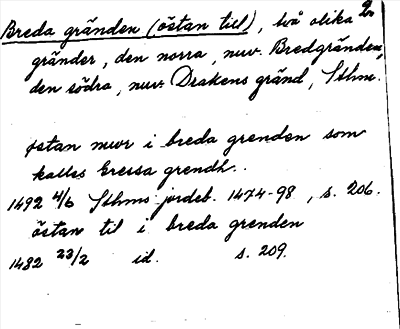 Breda gränden (östan till), två olika 2.
gränder, den norra, nuv. Bredgränden,
den södra, nuv. Drakens gränd, Sthm.
østan mwr i breda grenden som
kalles Gressa grendh..
1492 4/6 Sthms jordeb. 1474-98, s. 206.
östan til i breda grenden
1482 23/2 id. s. 209.